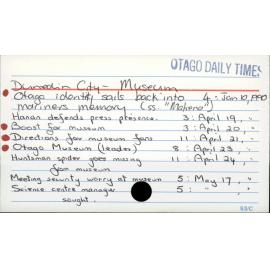 OTAGO DAILY TIMES
Dunedin City - Museum
Otago identity sails back into 4: Jan 10, 1990
mariners memory (ss. "Maheno")
Hanan defends press presence. 3: April 19, "
Boost for museum 3: April 20, "
Directions for museum fans 11: April 21, "
Otago Museum (leader) 8: April 23, "
Huntsman spider goes missing 11: April 24, "
from museum
Meeting security worry at museum 5: May 17, "
Science centre manager 5: " "
sought.